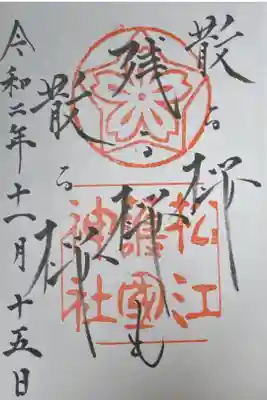 散る桜
残る桜も
散る桜
令和二年十一月十五日
松江
護國
神社